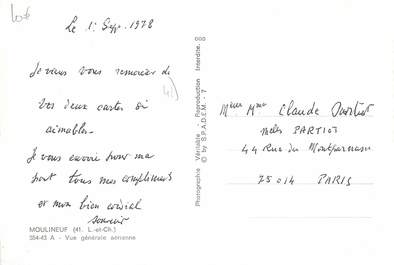 Le 1: Sep. 1978
Je viens vous remercier de
vos deux cartes si
aimables.
Je vous envoie pour ma
part tous mes compliments
et mon bien cordial
souvenir
MOULINEUF (41. L.-et-Ch.)
354-43 A - Vue générale aérienne
Photographie Véritable - Reproduction Interdite.
© by S.P.A.D.E.M. - 7
Mme Claude
PARTIOT
44 Rue du Montparnasse
75014 PARIS